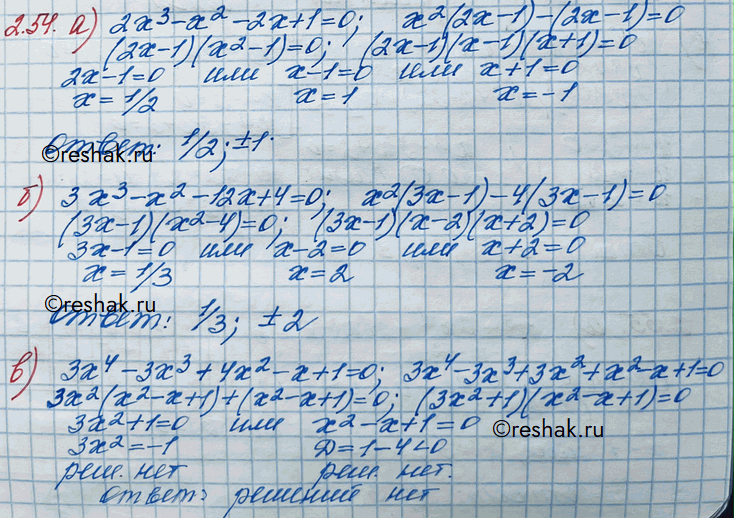 2.54. а) 2x³-x²-2x+1=0; x²(2x-1)-(2x-1)=0
(2x-1)(x²-1)=0; (2x-1)(x-1)(x+1)=0
2x-1=0 или x-1=0 или x+1=0
x=1/2 x=1 x=-1
Ответ: 1/2; ±1.
©reshak.ru
б) 3x³-x²-12x+4=0; x²(3x-1)-4(3x-1)=0
(3x-1)(x²-4)=0; (3x-1)(x-2)(x+2)=0
3x-1=0 или x-2=0 или x+2=0
x=1/3 x=2 x=-2
©reshak.ru
Ответ: 1/3; ±2
в) 3x⁴-3x³+4x²-x+1=0; 3x⁴-3x³+3x²+x²-x+1=0
3x²(x²-x+1)+(x²-x+1)=0; (3x²+1)(x²-x+1)=0
3x²+1=0 или x²-x+1=0
3x²=-1 D=1-4<0
©reshak.ru
реш. нет реш. нет.
ответ: решений нет